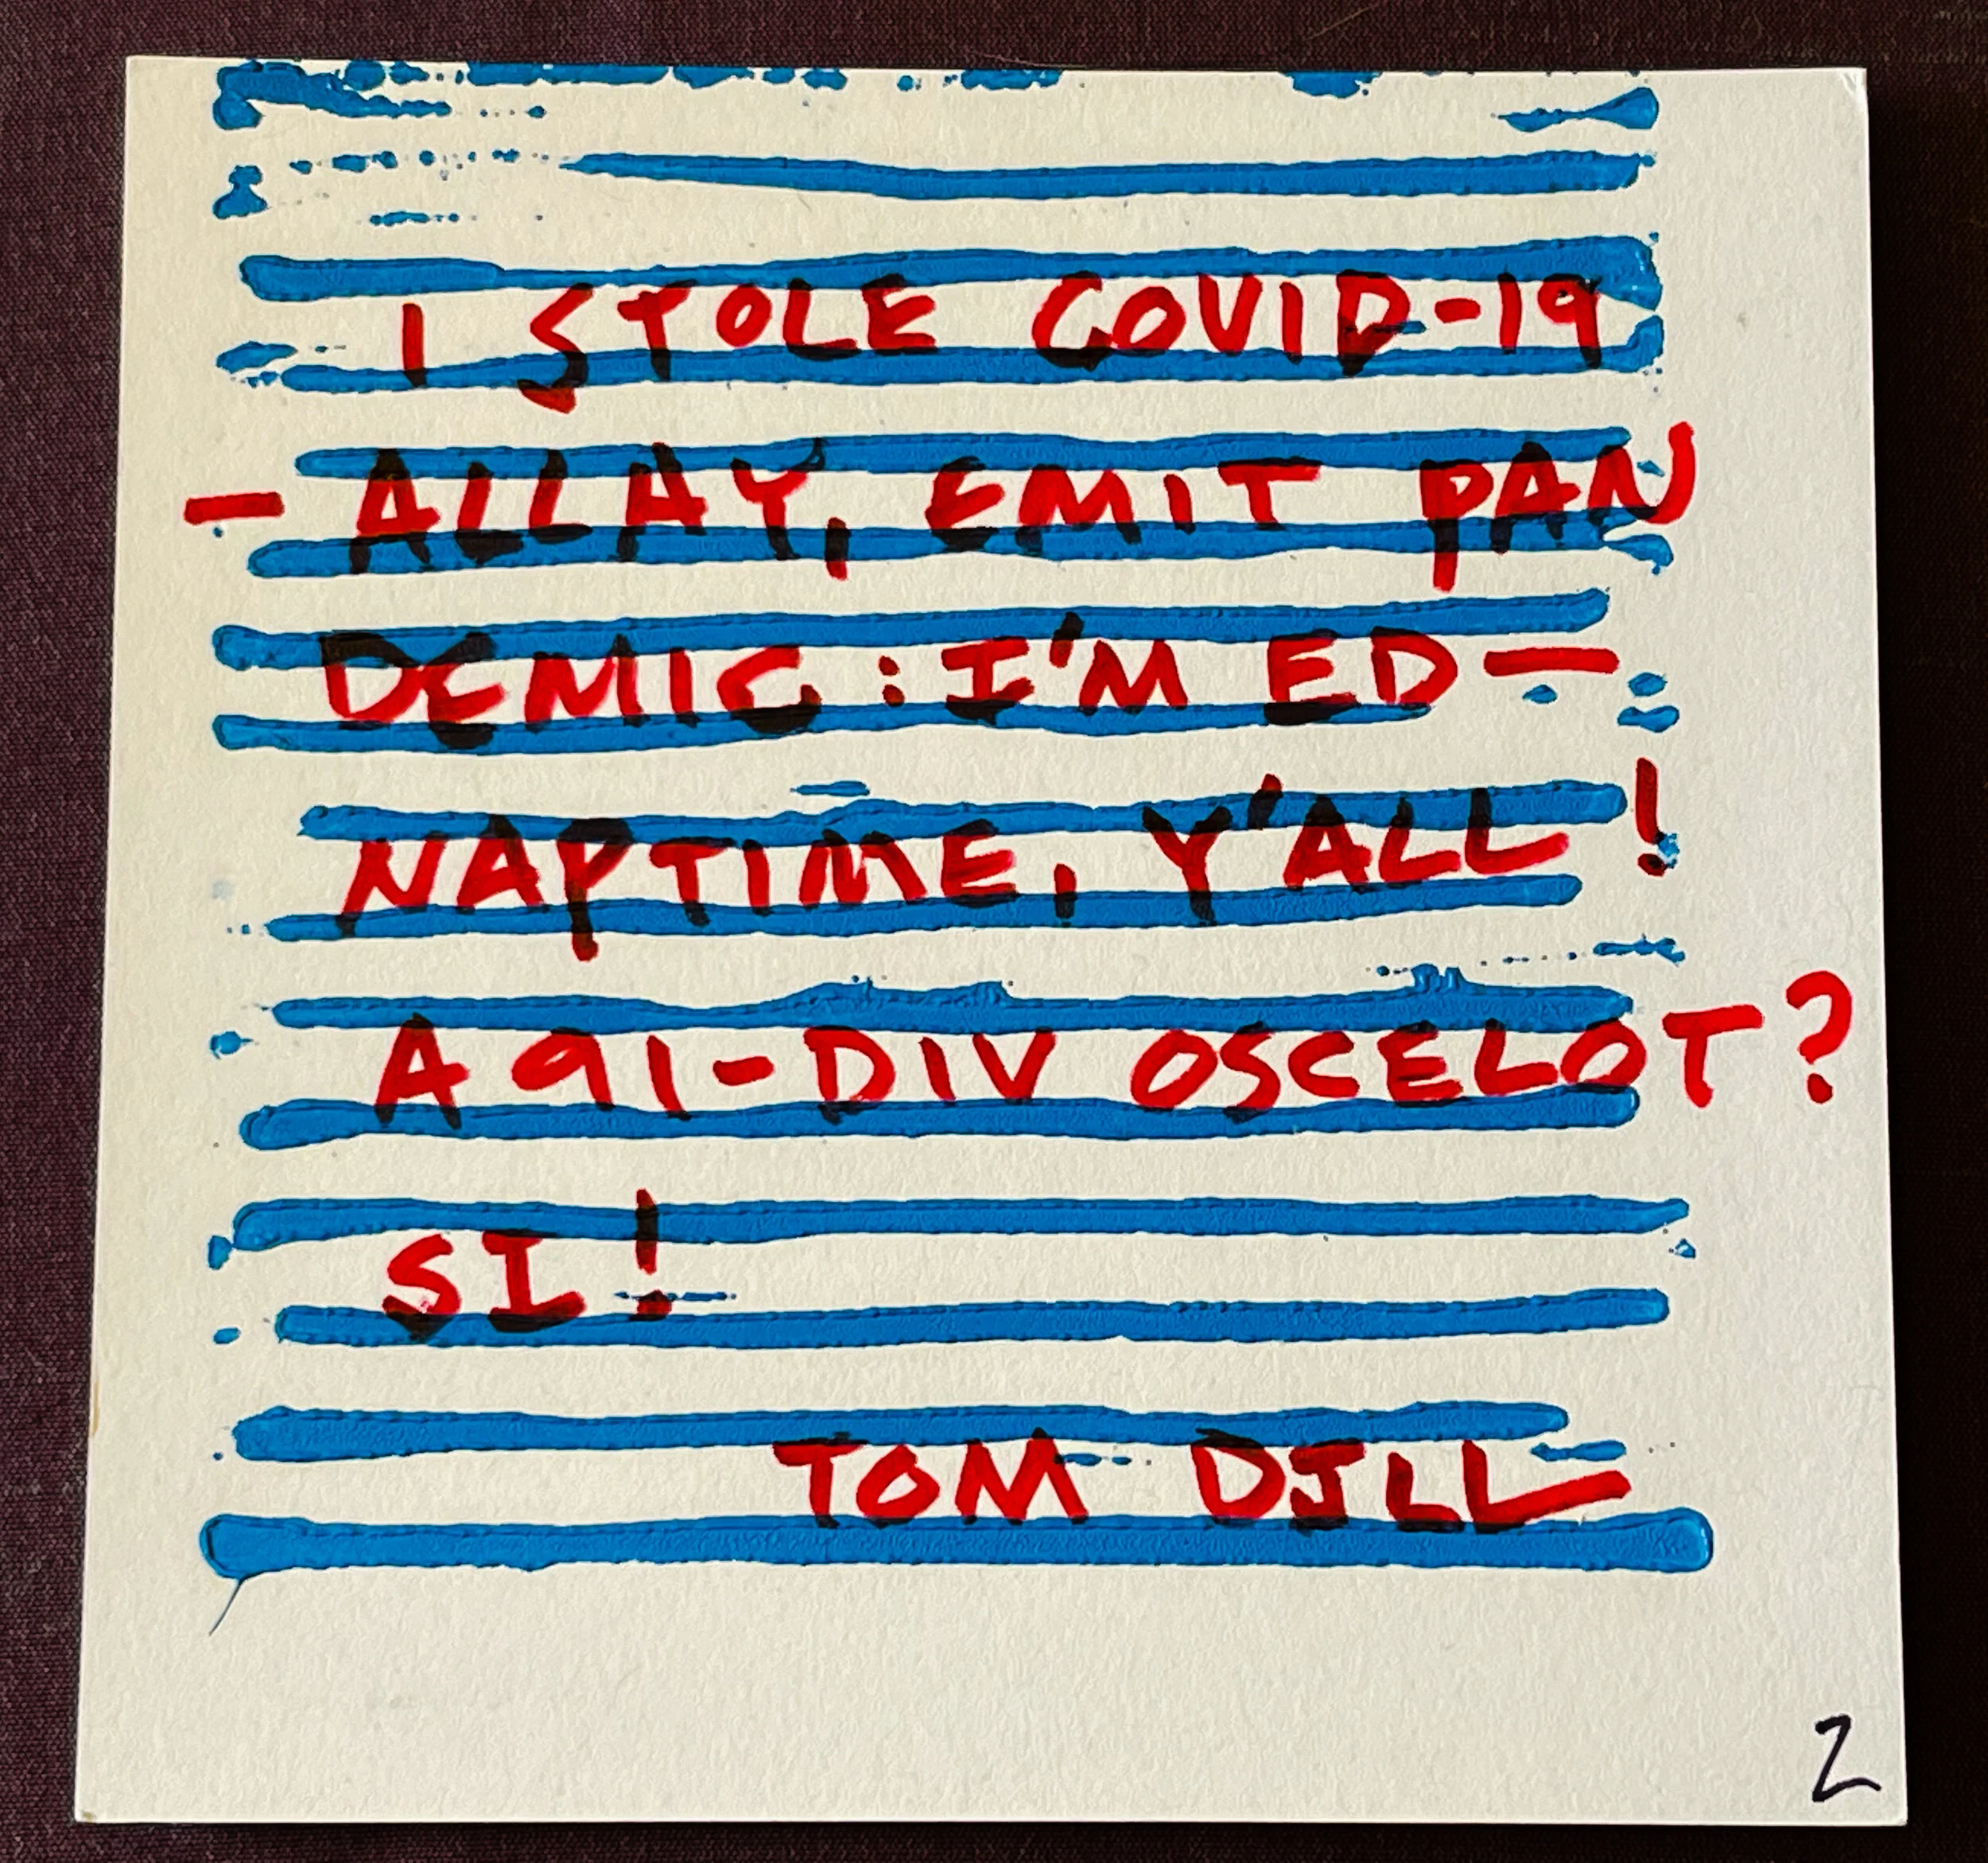 I STOLE COVID-19
- ALLAY, EMIT PAN
DEMIC : I'M ED-
NAPTIME, Y'ALL!
A 91-DIV OSCELOT?
SI!
TOM DILL
2